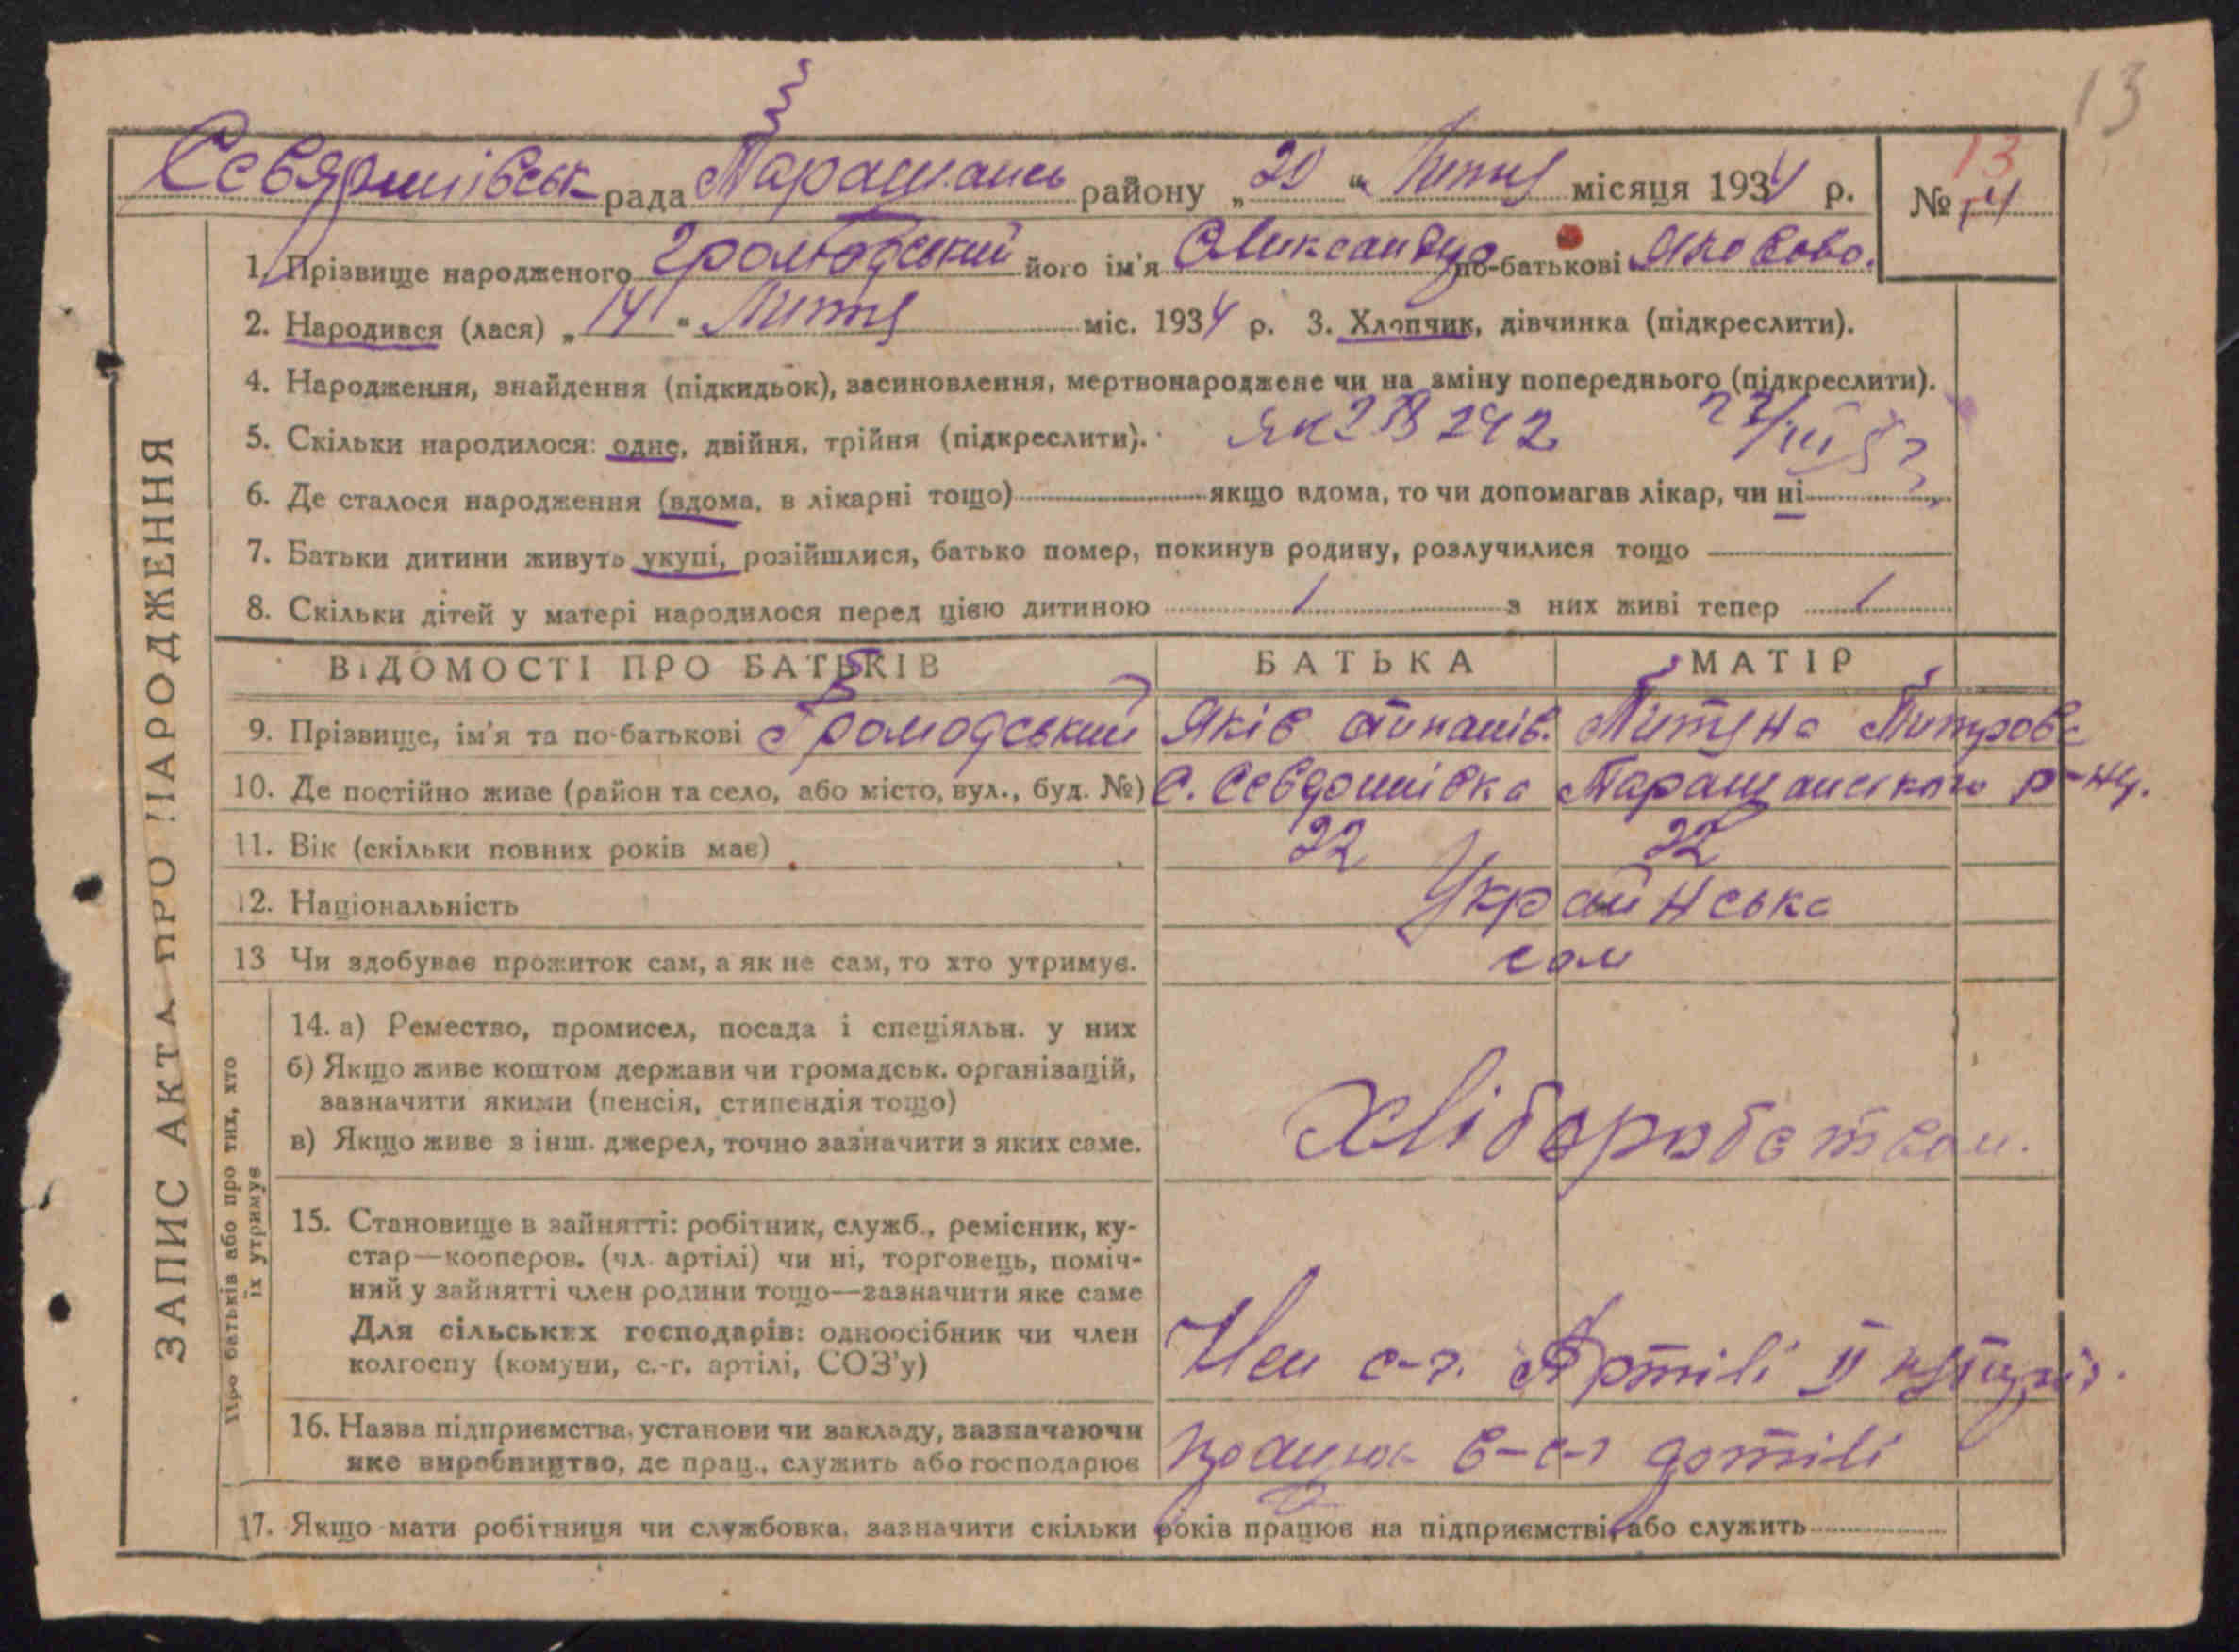 13
Севяринівськ рада Таращансь району „20“ Липня місяця 1934 р. № 14
13
1. Прізвище народженого Громодський його ім'я Олександр по-батькові Якоково.
2. Народився (лася) „14“ Липня міс. 1934 р. 3. Хлопчик, дівчинка (підкреслити).
4. Народження, знайдення (підкидьок), засиновлення, мертвонароджене чи на зміну попереднього (підкреслити).
5. Скільки народилося: одне, двійня, трійня (підкреслити).
6. Де сталося народження (вдома, в лікарні тощо) якщо вдома, то чи допомагав лікар, чи ні
7. Батьки дитини живуть укупі, розійшлися, батько помер, покинув родину, розлучилися тощо
8. Скільки дітей у матері народилося перед цією дитиною 1 з них живі тепер 1
ЗАПИС АКТА ПРО НАРОДЖЕННЯ
ВІДОМОСТІ ПРО БАТЬКІВ БАТЬКА МАТІР
9. Прізвище, ім'я та по-батькові Громодський Яків
10. Де постійно живе (район та село, або місто, вул., буд. №) с. Таращанського р-ну.
11. Вік (скільки повних років має) 22 22
12. Національність Українська
13 Чи здобуває прожиток сам, а як не сам, то хто утримує. сам
Про батьків або про тих, хто
їх утримує
14. а) Ремество, промисел, посада і спеціяльн. у них
б) Якщо живе коштом держави чи громадськ. організацій,
зазначити якими (пенсія, стипендія тощо)
в) Якщо живе з інш. джерел, точно зазначити з яких саме.
Хліборобством.
15. Становище в зайнятті: робітник, служб., ремісник, ку-
стар—кооперов. (чл. артілі) чи ні, торговець, поміч-
ний у зайнятті член родини тощо—зазначити яке саме
Для сільських господарів: одноосібник чи член
колгоспу (комуни, с.-г. артілі, СОЗ'у)
Член с-г. Артілі II
16. Назва підприємства, установи чи закладу, зазначаючи
яке виробництво, де прац., служить або господарює
працює в с-г артілі
17. Якщо мати робітниця чи службовка, зазначити скільки років працює на підприємстві, або служить